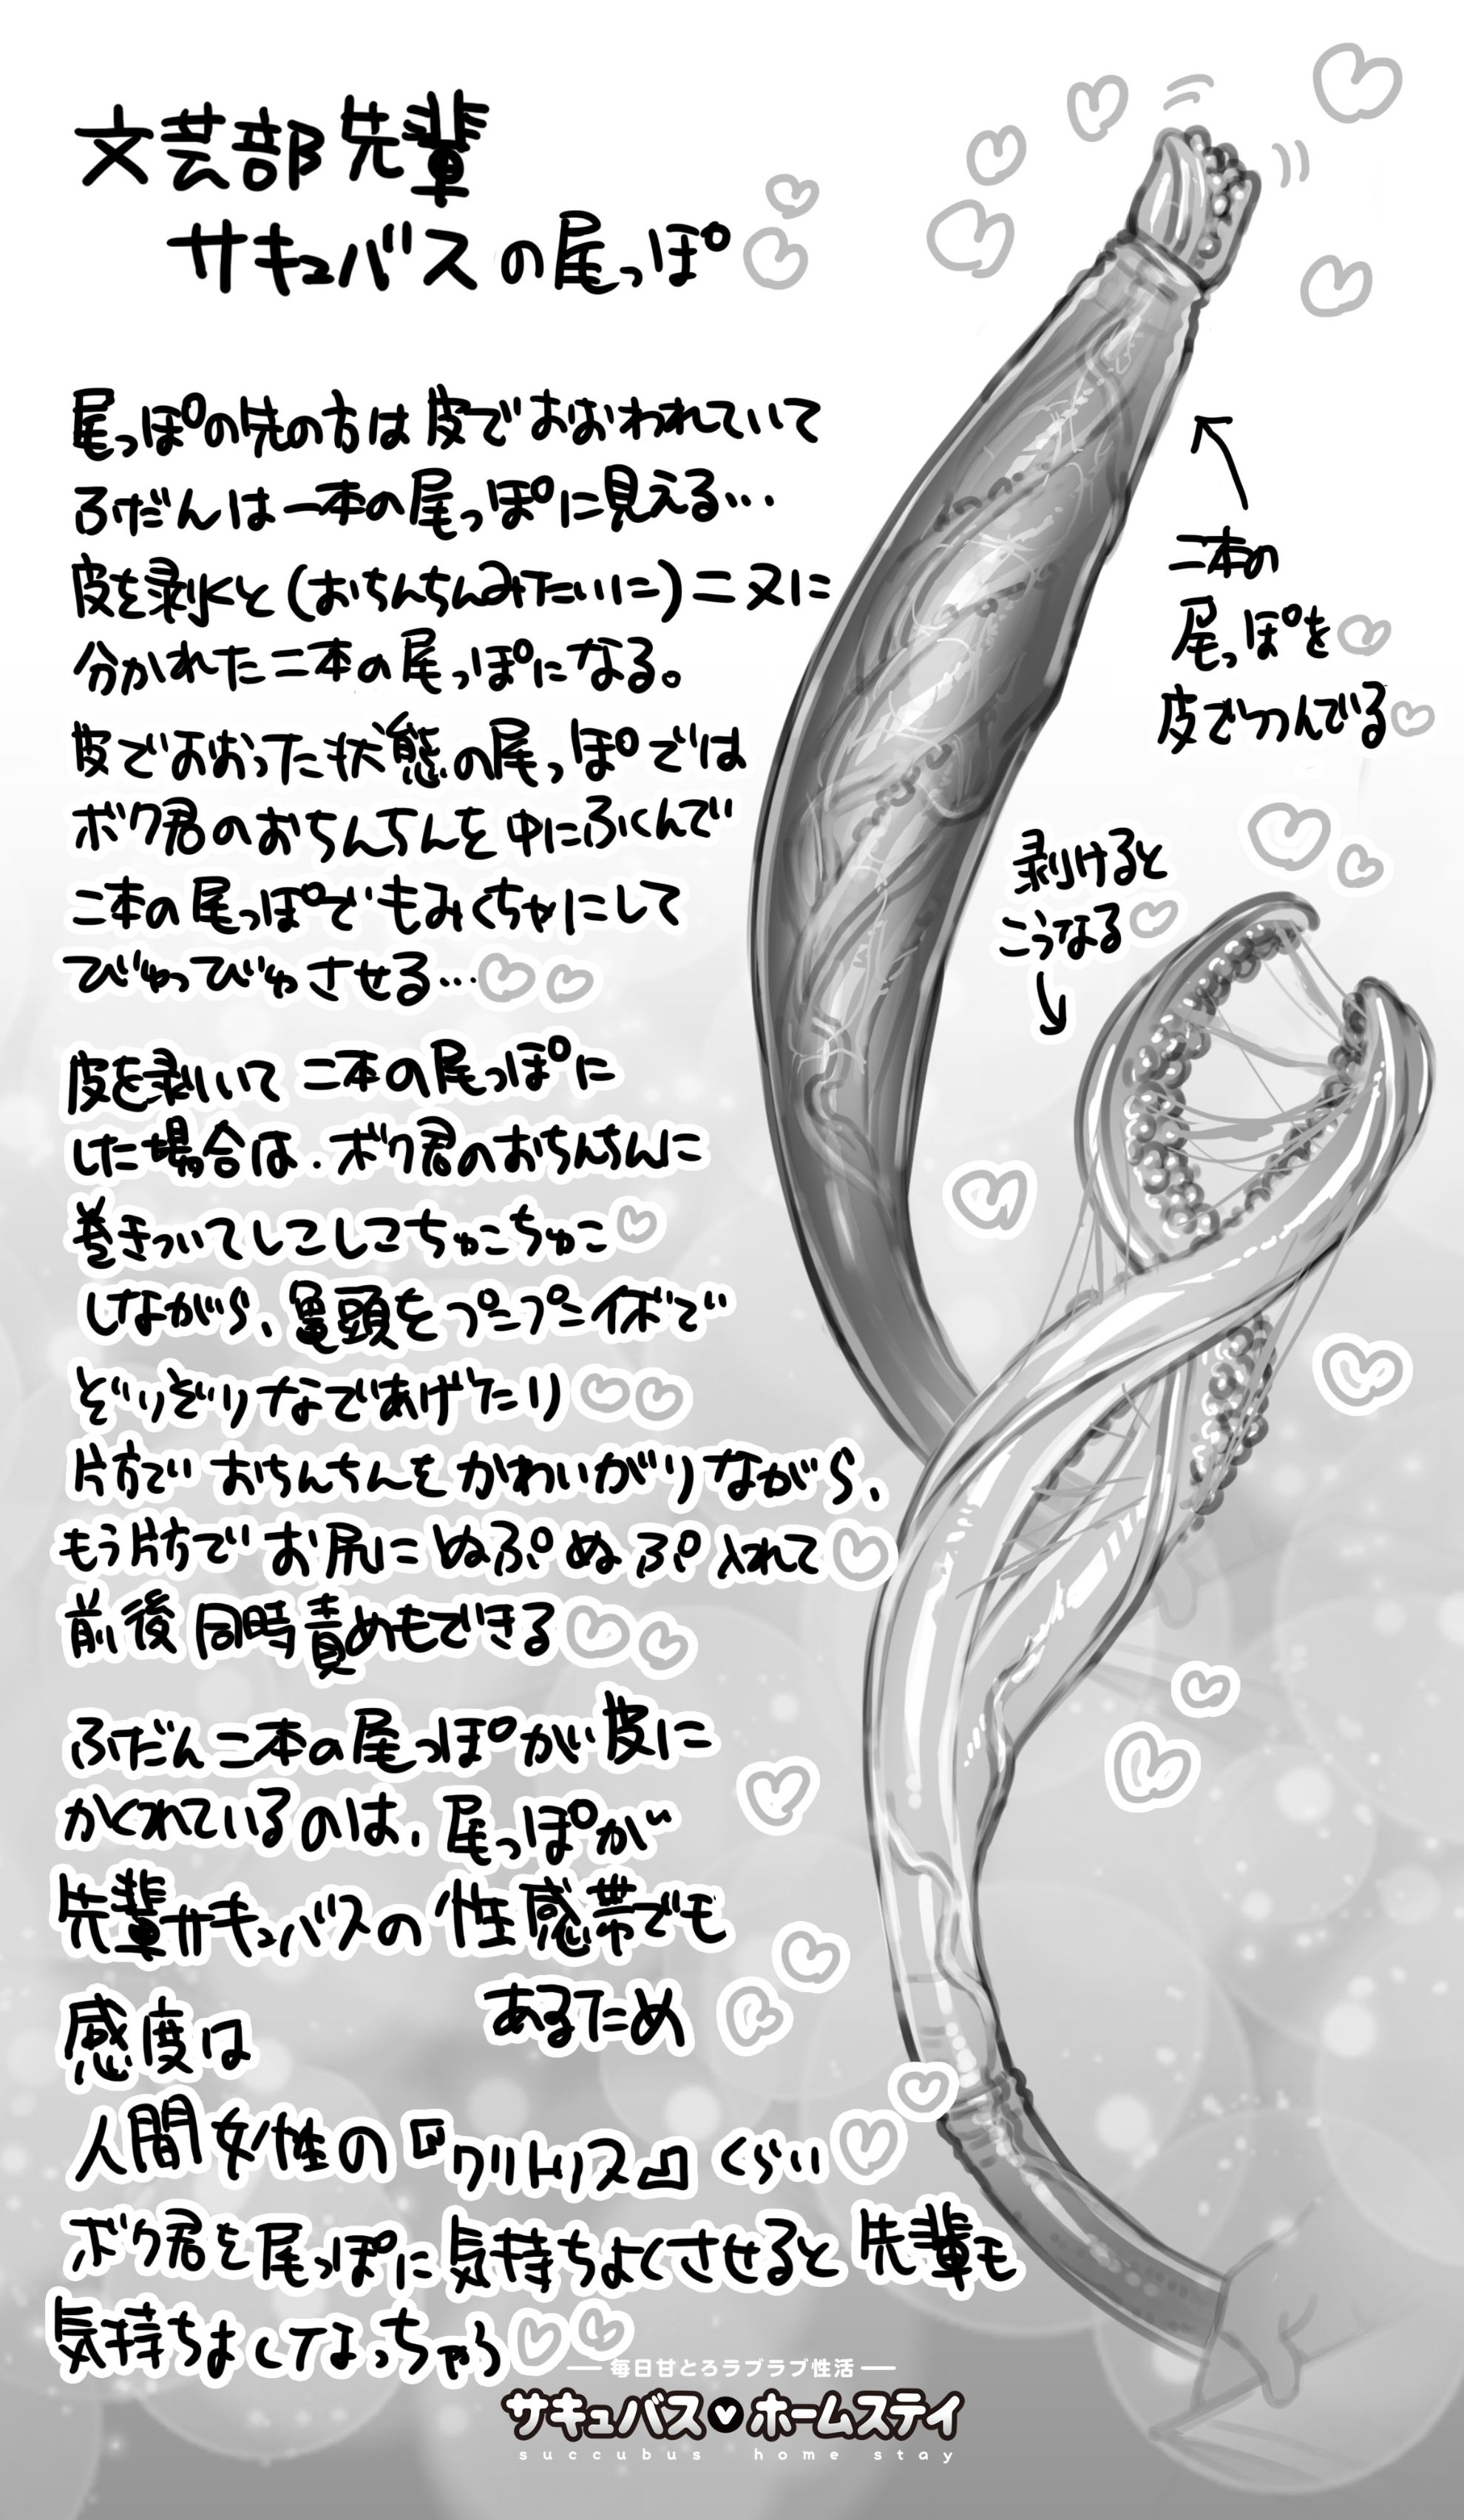 文芸部先輩
サキュバスの尾っぽ
尾っぽの先の方は皮でおおわれていて
ふだんは一本の尾っぽに見える…
皮を剥くと(おちんちんみたいに)二又に
分かれた二本の尾っぽになる。
皮でおおった状態の尾っぽでは
ボク君のおちんちんを中にふくんで
二本の尾っぽでもみくちゃにして
びゅっびゅさせる…
皮を剥いて二本の尾っぽに
した場合は、ボク君のおちんちんに
巻きついてしこしこちゅこちゅこ
しながら、亀頭をプニプニイボで
ぞりぞりなであげたり
片方でおちんちんをかわいがりながら、
もう片方でお尻にぬぷぬぷ入れて
前後同時責めもできる
ふだん二本の尾っぽが皮に
かくれているのは、尾っぽが
先輩サキュバスの性感帯でも
あるため
感度は
人間女性の『クリトリス』くらい
ボク君を尾っぽに気持ちよくさせると先輩も
気持ちよくてなっちゃう
二本の
尾っぽを
皮でつつんでいる
剥けると
こうなる
毎日甘とろラブラブ性活
サキュバス ホームステイ
succubus home stay